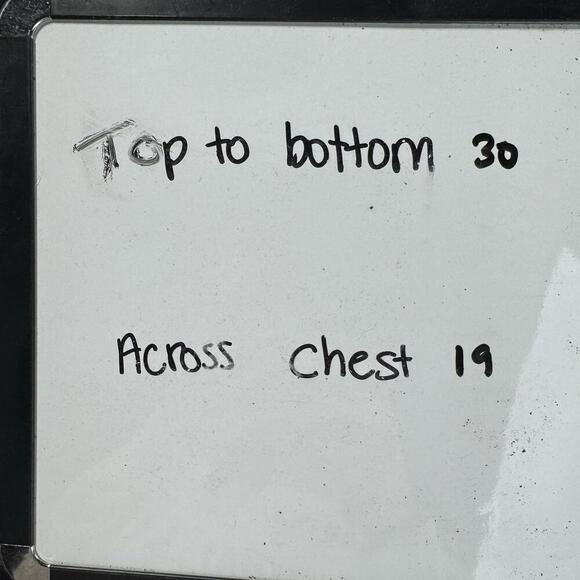 Top to bottom 30
Across Chest 19